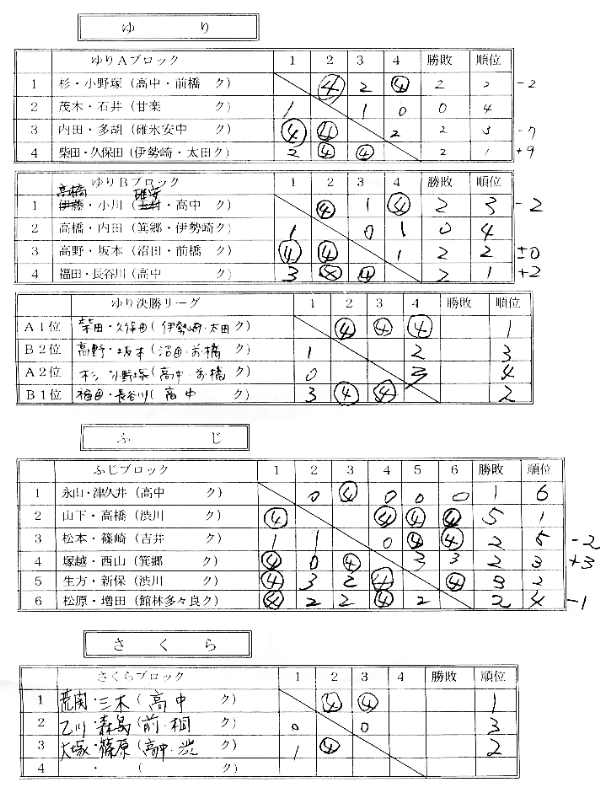 ゆり
ゆりAブロック 1 2 3 4 勝敗 順位
1 杉・小野塚（高中・前橋 ク） ④ 2 ④ 2 2 -2
2 茂木・石井（甘楽 ク） 1 1 0 0 4
3 内田・多胡（碓氷安中 ク） ④ ④ 2 2 3 -7
4 柴田・久保田（伊勢崎・太田ク） 2 ④ ④ 2 1 +9
ゆりBブロック 1 2 3 4 勝敗 順位
高橋 碓安
1 伊藤・小川（ ・高中 ク） ④ 1 ④ 2 3 -2
2 高橋・内田（箕郷・伊勢崎ク） 1 0 1 0 4
3 高野・坂本（沼田・前橋 ク） ④ ④ 1 2 2 ±0
4 福田・長谷川（高中 ク） 3 ④ ④ 2 1 +2
ゆり決勝リーグ 1 2 3 4 勝敗 順位
A1位 柴田・久保田（伊勢崎・太田ク） ④ ④ ④ 1
B2位 高野・坂本（沼田・前橋ク） 1 2 3
A2位 杉・小野塚（高中・前橋ク） 0 3 4
B1位 福田・長谷川（高中 ク） 3 ④ ④ 2
ふじ
ふじブロック 1 2 3 4 5 6 勝敗 順位
1 永山・津久井（高中 ク） 0 ④ 0 0 0 1 6
2 山下・高橋（渋川 ク） ④ ④ ④ ④ 5 1
3 松本・篠崎（吉井 ク） 1 1 0 ④ ④ 2 5 -2
4 塚越・西山（箕郷 ク） ④ 0 ④ 3 3 2 3 +3
5 生方・新保（渋川 ク） ④ 3 2 ④ ④ 3 2
6 松原・増田（館林多々良ク） ④ 2 2 ④ 2 2 4 -1
さくら
さくらブロック 1 2 3 4 勝敗 順位
1 荒関・三木（高中 ク） ④ ④ 1
2 乙川・森島（前・桐 ク） 0 0 3
3 大塚・篠原（高中・渋 ク） 1 ④ 2
4 ・ （ ク）